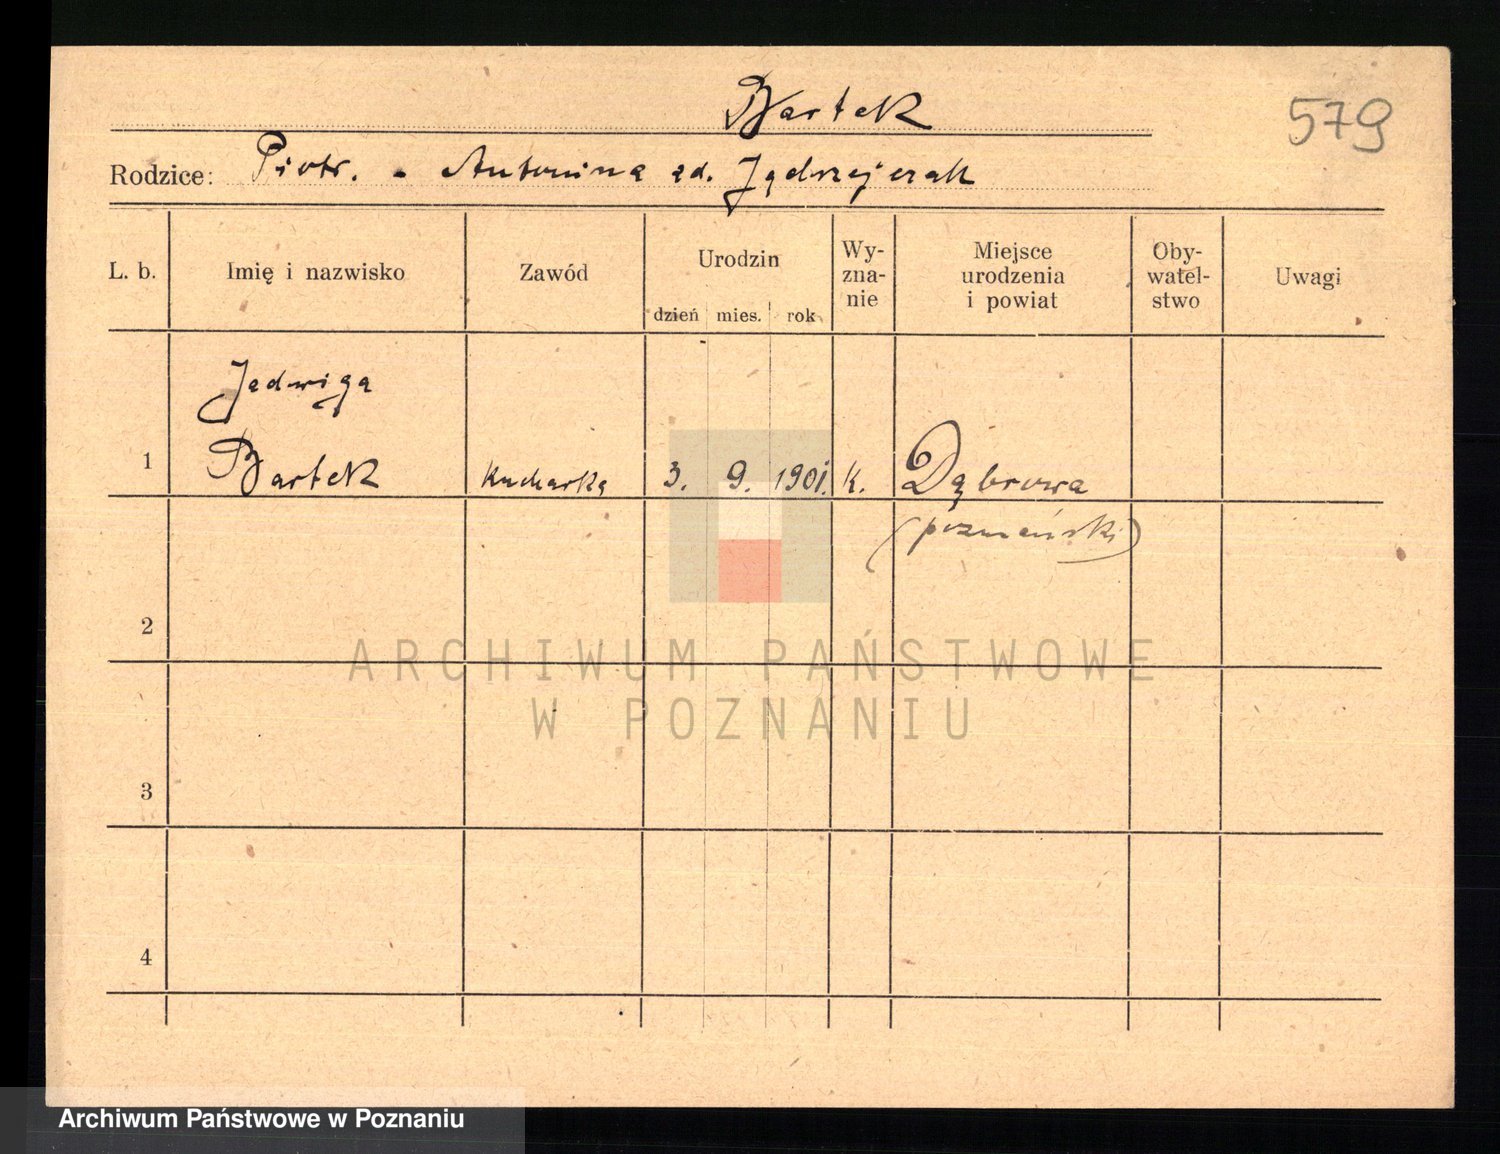 Bartek
579
Rodzice: Piotr. - Antonina zd. Jędrzejczak
L. b. Imię i nazwisko Zawód Urodzin dzień mies. rok Wy-zna-nie Miejsce urodzenia i powiat Oby-watel-stwo Uwagi
Jadwiga
1 Bartek Kucharka 3. 9. 1901. K. Dąbrowa
(poznański)
2
ARCHIWUM PAŃSTWOWE
W POZNANIU
3
4
Archiwum Państwowe w Poznaniu